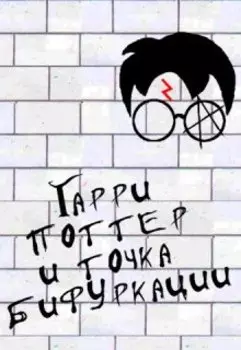 Гарри
поттер
и точка
бифуркации